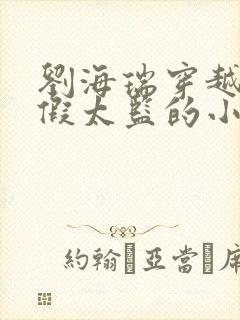 劉海瑞穿越
假太監的小
約翰·亞當·席